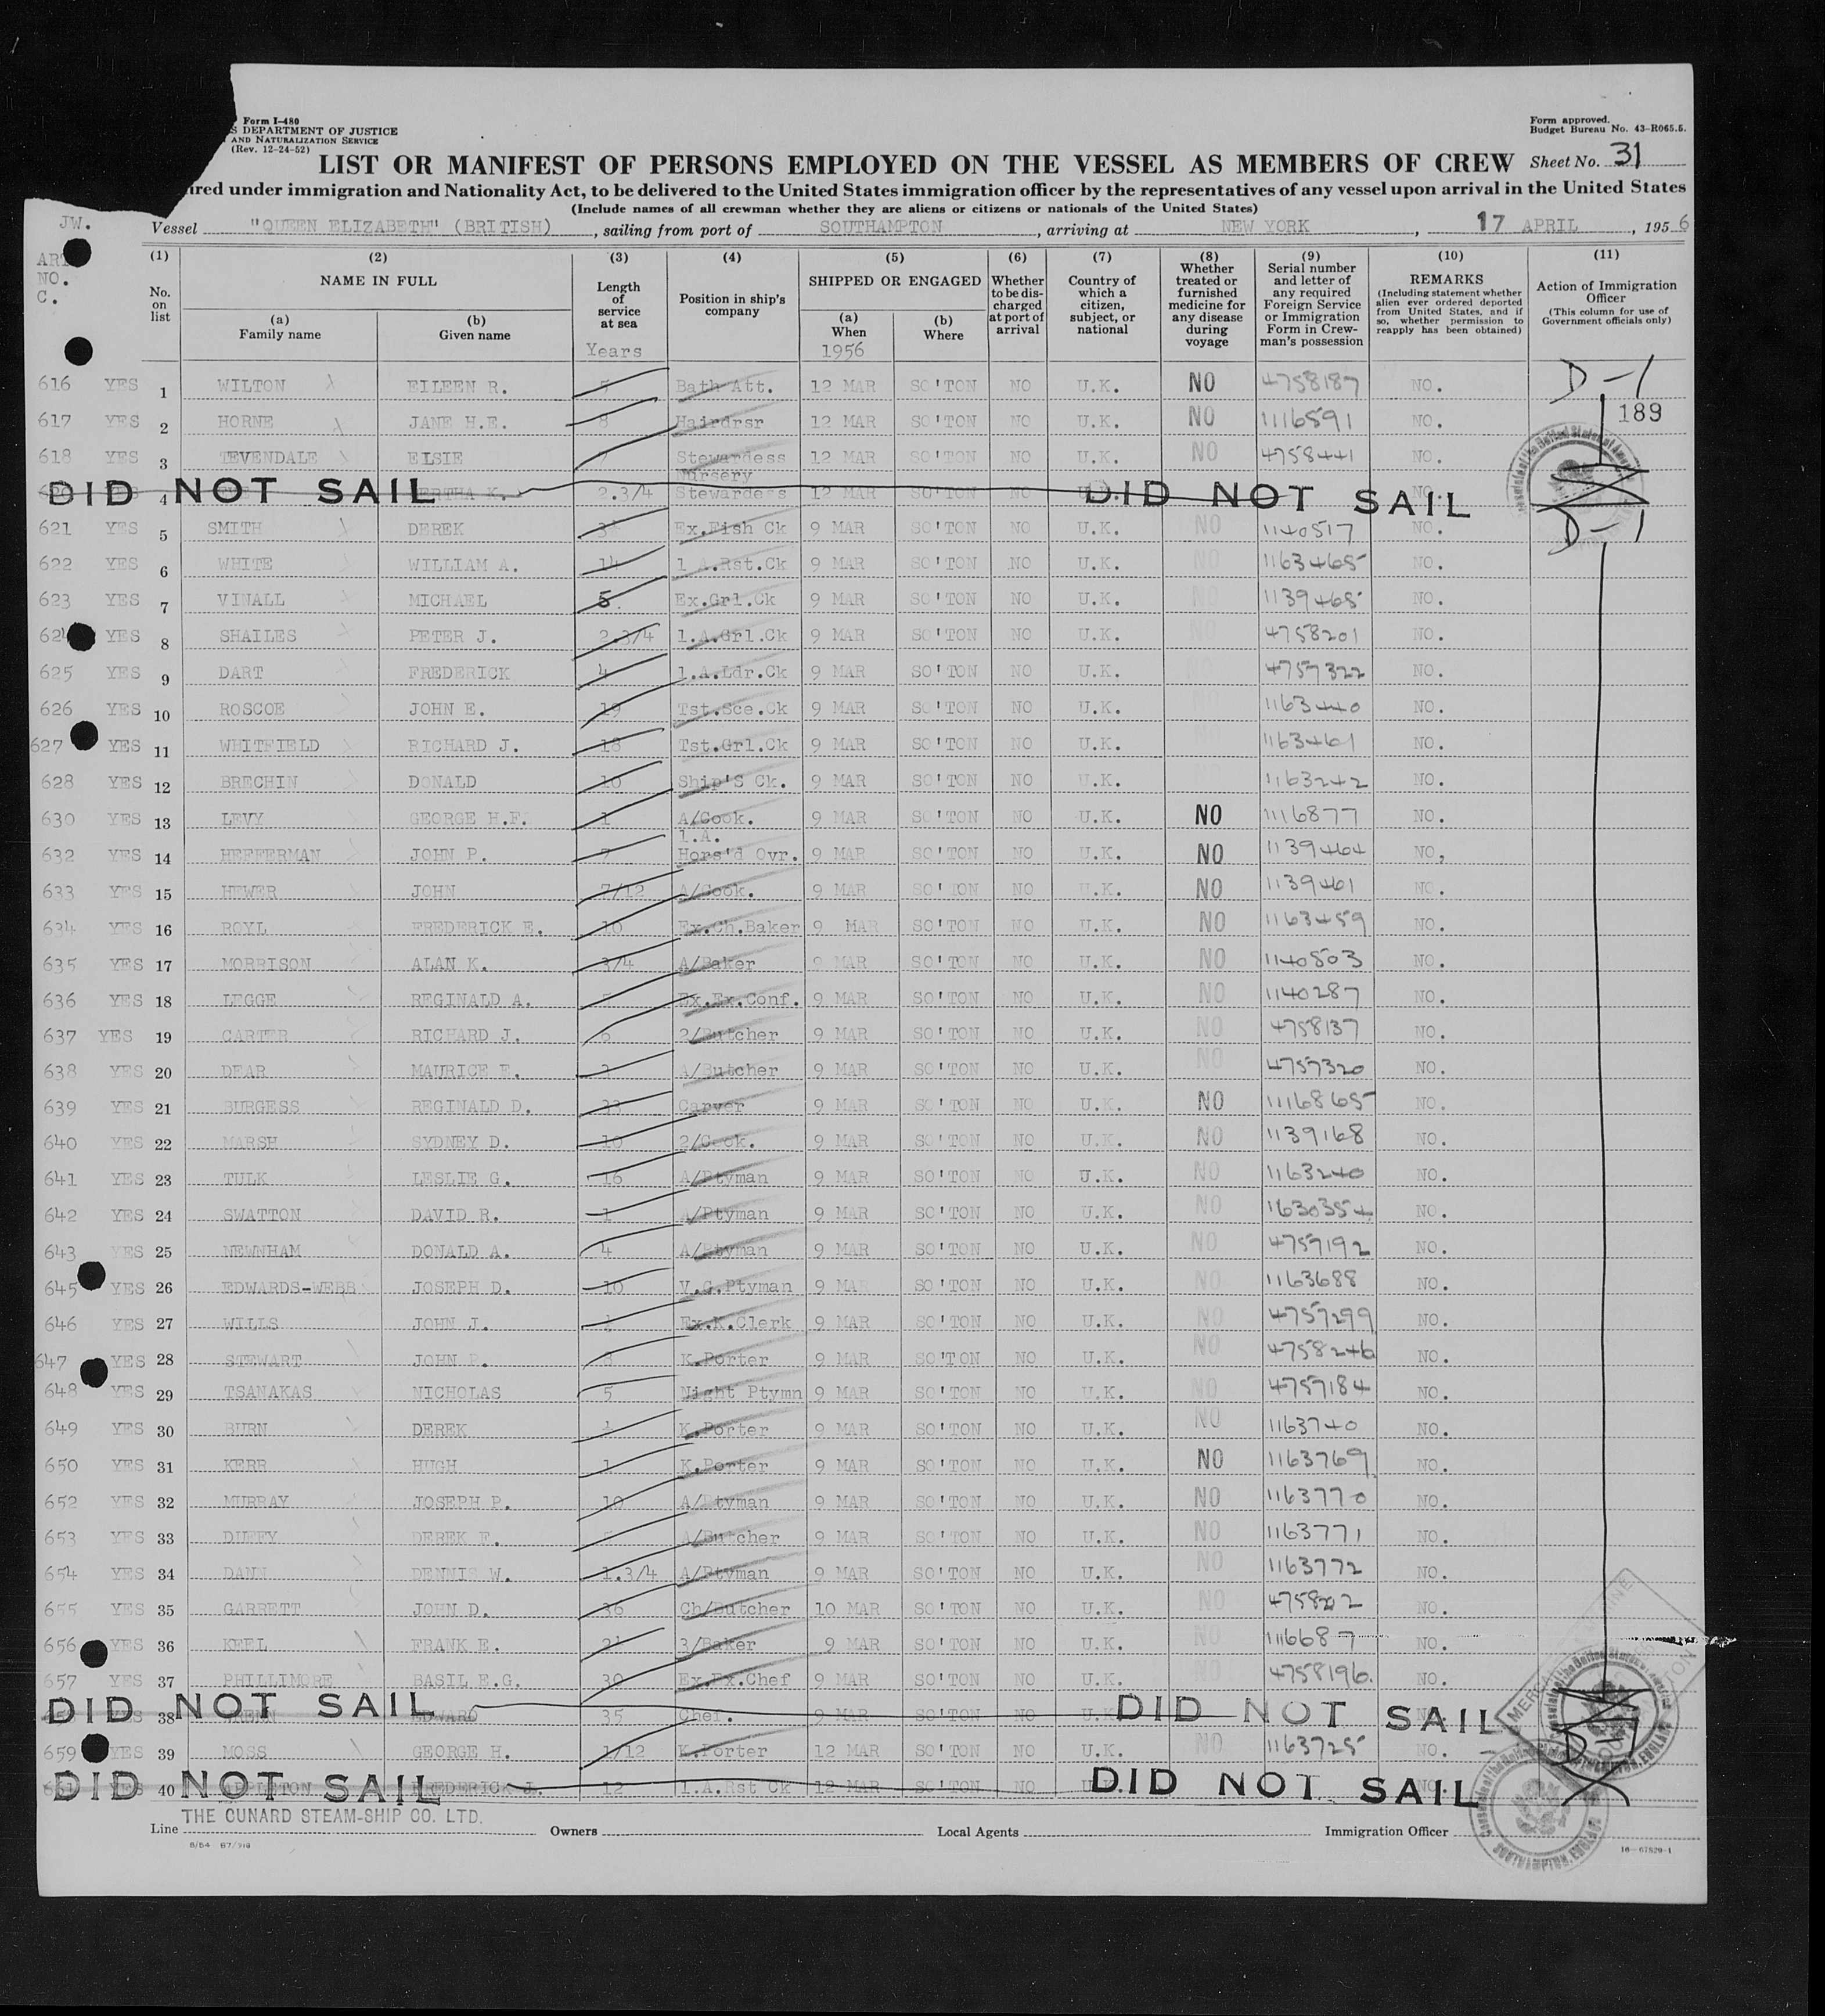 Form I-480
S DEPARTMENT OF JUSTICE
AND NATURALIZATION SERVICE
(Rev. 12-24-52)
Form approved.
Budget Bureau No. 43-R065.5.
LIST OR MANIFEST OF PERSONS EMPLOYED ON THE VESSEL AS MEMBERS OF CREW Sheet No. 31
ired under immigration and Nationality Act, to be delivered to the United States immigration officer by the representatives of any vessel upon arrival in the United States
(Include names of all crewman whether they are aliens or citizens or nationals of the United States)
JW. Vessel "QUEEN ELIZABETH" (BRITISH), sailing from port of SOUTHAMPTON, arriving at NEW YORK, 17 APRIL, 1956
ART NO. C.
(1) No. on list
(2) NAME IN FULL (a) Family name (b) Given name
(3) Length of service at sea Years
(4) Position in ship's company
(5) SHIPPED OR ENGAGED (a) When 1956 (b) Where
(6) Whether to be discharged at port of arrival
(7) Country of which a citizen, subject, or national
(8) Whether treated or furnished medicine for any disease during voyage
(9) Serial number and letter of any required Foreign Service or Immigration Form in Crewman's possession
(10) REMARKS (Including statement whether alien ever ordered deported from United States, and if so, whether permission to reapply has been obtained)
(11) Action of Immigration Officer (This column for use of Government officials only)
616 YES 1 WILTON EILEEN R. Bath Att. 12 MAR SO'TON NO U.K. NO 4758187 NO. D-1
189
617 YES 2 HORNE JANE H.E. 8 Hairdrsr 12 MAR SO'TON NO U.K. NO 1116591 NO.
618 YES 3 TEVENDALE ELSIE Stewardess 12 MAR SO'TON NO U.K. NO 4758441 NO.
DID NOT SAIL 4 BERTHA K. 2.3/4 Nursery Stewardess 12 MAR SO'TON NO DID NOT SAIL NO.
621 YES 5 SMITH DEREK Ex.Fish Ck 9 MAR SO'TON NO U.K. NO 1140517 NO. D-1
622 YES 6 WHITE WILLIAM A. 14 1 A.Rst.Ck 9 MAR SO'TON NO U.K. 1163465 NO.
623 YES 7 VINALL MICHAEL 5. Ex.Grl.Ck 9 MAR SO'TON NO U.K. 1139465 NO.
624 YES 8 SHAILES PETER J. 2.3/4 1.A.Grl.Ck 9 MAR SO'TON NO U.K. 4758201 NO.
625 YES 9 DART FREDERICK 4 1.A.Ldr.Ck 9 MAR SO'TON NO U.K. 4757322 NO.
626 YES 10 ROSCOE JOHN E. 19 Tst.Sce.Ck 9 MAR SO'TON NO U.K. 1163440 NO.
627 YES 11 WHITFIELD RICHARD J. 18 Tst.Grl.Ck 9 MAR SO'TON NO U.K. 1163461 NO.
628 YES 12 BRECHIN DONALD 10 Ship'S Ck. 9 MAR SO'TON NO U.K. 1163242 NO.
630 YES 13 LEVY GEORGE H.F. 1 A/Cook. 9 MAR SO'TON NO U.K. NO 1116877 NO.
632 YES 14 HEFFERMAN JOHN P. 7 1.A. Hors'd Ovr. 9 MAR SO'TON NO U.K. NO 1139464 NO,
633 YES 15 HEWER JOHN 7/12 A/Cook. 9 MAR SO'TON NO U.K. NO 1139461 NO.
634 YES 16 ROYL FREDERICK E. 10 Ex.Ch.Baker 9 MAR SO'TON NO U.K. NO 1163459 NO.
635 YES 17 MORRISON ALAN K. 3/4 A/Baker 9 MAR SO'TON NO U.K. NO 1140503 NO.
636 YES 18 LEGGE REGINALD A. Ex.Ex.Conf. 9 MAR SO'TON NO U.K. NO 1140287 NO.
637 YES 19 CARTER RICHARD J. 6 2/Butcher 9 MAR SO'TON NO U.K. NO 4758137 NO.
638 YES 20 DEAR MAURICE E. A/Butcher 9 MAR SO'TON NO U.K. NO 4757320 NO.
639 YES 21 BURGESS REGINALD D. Carver 9 MAR SO'TON NO U.K. NO 1116865 NO.
640 YES 22 MARSH SYDNEY D. 10 2/Cook. 9 MAR SO'TON NO U.K. NO 1139168 NO.
641 YES 23 TULK LESLIE G. 16 A/Ptyman 9 MAR SO'TON NO U.K. NO 1163240 NO.
642 YES 24 SWATTON DAVID R. 1 A/Ptyman 9 MAR SO'TON NO U.K. NO 1630354 NO.
643 YES 25 NEWNHAM DONALD A. 4 A/Ptyman 9 MAR SO'TON NO U.K. NO 4757192 NO.
645 YES 26 EDWARDS-WEBB JOSEPH D. 10 V.G.Ptyman 9 MAR SO'TON NO U.K. NO 1163688 NO.
646 YES 27 WILLS JOHN J. Ex.K.Clerk 9 MAR SO'TON NO U.K. NO 4757299 NO.
647 YES 28 STEWART JOHN 8 K.Porter 9 MAR SO'TON NO U.K. NO 4758246 NO.
648 YES 29 TSANAKAS NICHOLAS 5 Night Ptymn 9 MAR SO'TON NO U.K. NO 4757184 NO.
649 YES 30 BURN DEREK K.Porter 9 MAR SO'TON NO U.K. NO 1163740 NO.
650 YES 31 KERR HUGH 1 K.Porter 9 MAR SO'TON NO U.K. NO 1163769 NO.
652 YES 32 MURRAY JOSEPH P. 10 A/Ptyman 9 MAR SO'TON NO U.K. NO 1163770 NO.
653 YES 33 DUFFY DEREK F. A/Butcher 9 MAR SO'TON NO U.K. NO 1163771 NO.
654 YES 34 DANN DENNIS W. 1.3/4 A/Ptyman 9 MAR SO'TON NO U.K. NO 1163772 NO.
655 YES 35 GARRETT JOHN D. 36 Ch/Butcher 10 MAR SO'TON NO U.K. NO NO.
656 YES 36 KEEL FRANK E. 3/Baker 9 MAR SO'TON NO U.K. NO 1116687 NO.
657 YES 37 PHILLIMORE BASIL E.G. 30 Ex.Ex.Chef 9 MAR SO'TON NO U.K. 4758196. NO.
DID NOT SAIL 38 EDWARD 35 Chef. 9 MAR SO'TON NO U.K. DID NOT SAIL
659 YES 39 MOSS GEORGE H. 1/12 K.Porter 12 MAR SO'TON NO U.K. NO 1163725 NO. D-1
DID NOT SAIL 40 APPLETON FREDERICK J. 12 1.A.Rst Ck 12 MAR SO'TON NO DID NOT SAIL
Line THE CUNARD STEAM-SHIP CO. LTD. Owners Local Agents Immigration Officer
SOUTHAMPTON, ENGLAND
16-67829-1